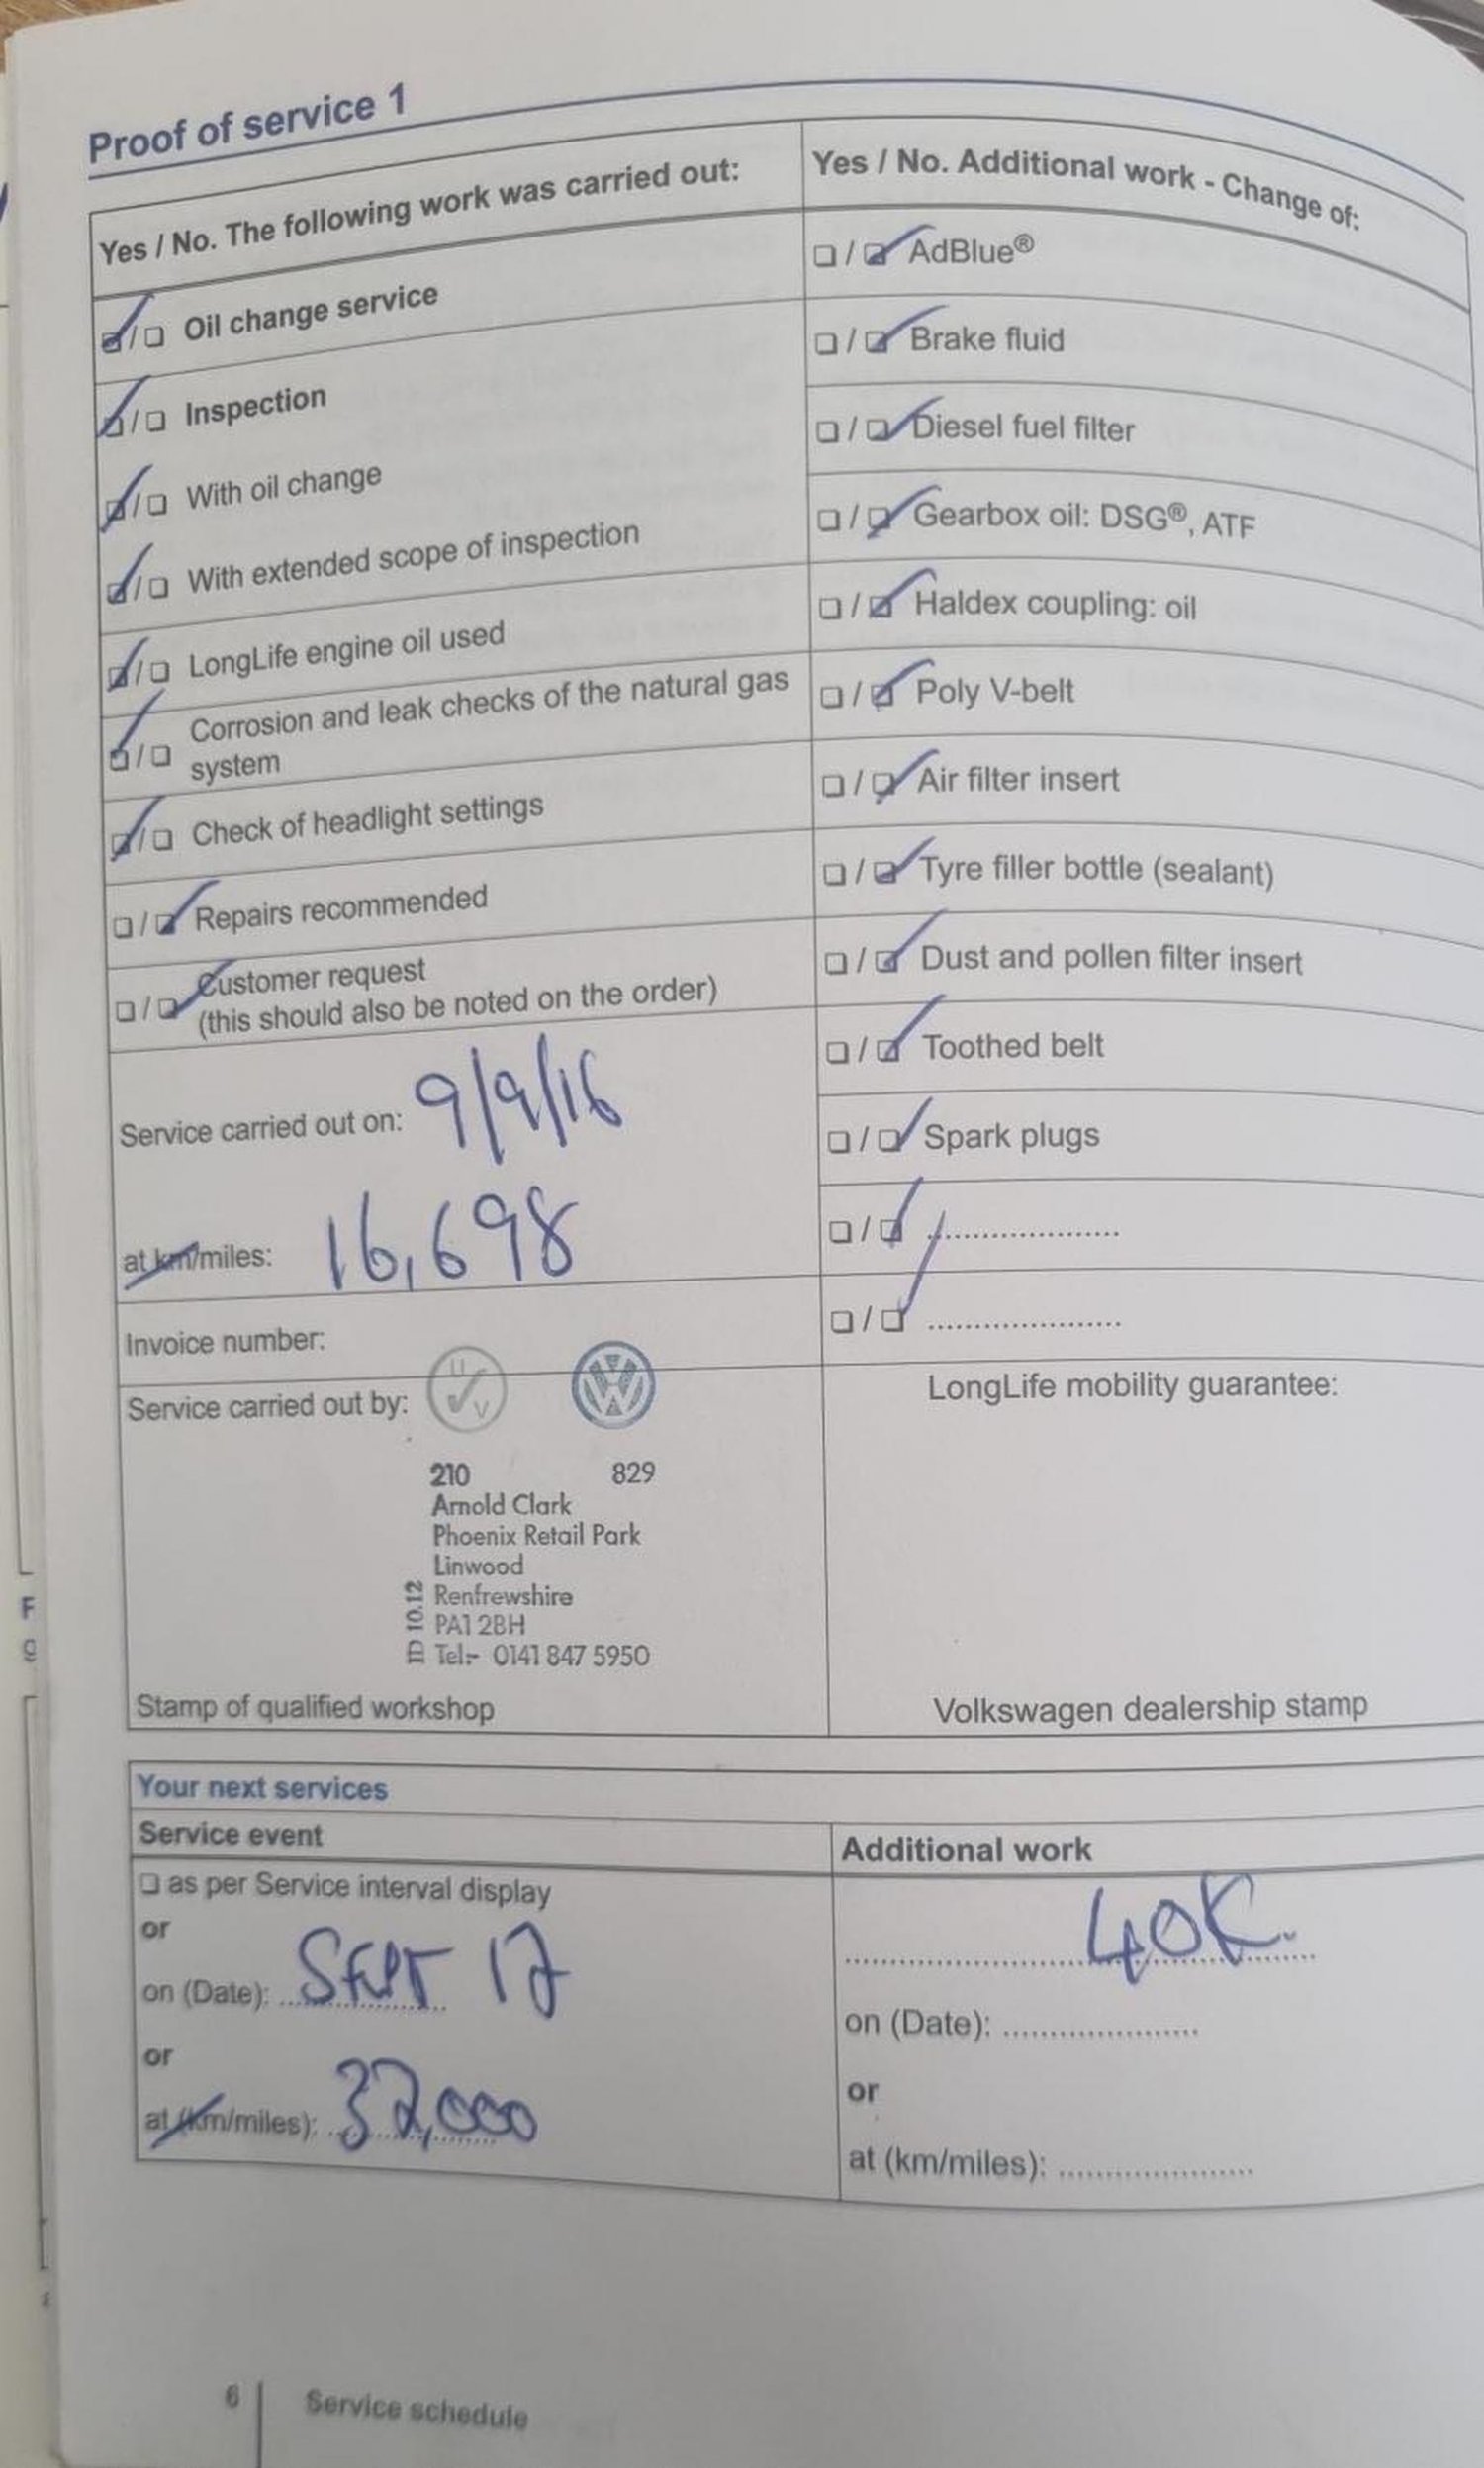 Proof of service 1
Yes / No. The following work was carried out:
☑/❏ Oil change service
☑/❏ Inspection
☑/❏ With oil change
☑/❏ With extended scope of inspection
☑/❏ LongLife engine oil used
☑/❏ Corrosion and leak checks of the natural gas
system
☑/❏ Check of headlight settings
❏/☑ Repairs recommended
❏/☑ Customer request
(this should also be noted on the order)
Service carried out on: 9/9/16
at km/miles: 16,698
Invoice number:
Service carried out by:
U
V
VW
210 829
Arnold Clark
Phoenix Retail Park
Linwood
Renfrewshire
PA1 2BH
Tel:- 0141 847 5950
ID 10.12
Stamp of qualified workshop
Yes / No. Additional work - Change of:
❏/☑ AdBlue®
❏/☑ Brake fluid
❏/☑ Diesel fuel filter
❏/☑ Gearbox oil: DSG®, ATF
❏/☑ Haldex coupling: oil
❏/☑ Poly V-belt
❏/☑ Air filter insert
❏/☑ Tyre filler bottle (sealant)
❏/☑ Dust and pollen filter insert
❏/☑ Toothed belt
❏/☑ Spark plugs
❏/☑ .....................
❏/☑ .....................
LongLife mobility guarantee:
Volkswagen dealership stamp
Your next services
Service event
❏ as per Service interval display
or
on (Date): SEPT 17
or
at (km/miles): 32,000
Additional work
40K.
on (Date): .....................
or
at (km/miles): .....................
6 Service schedule
F
g